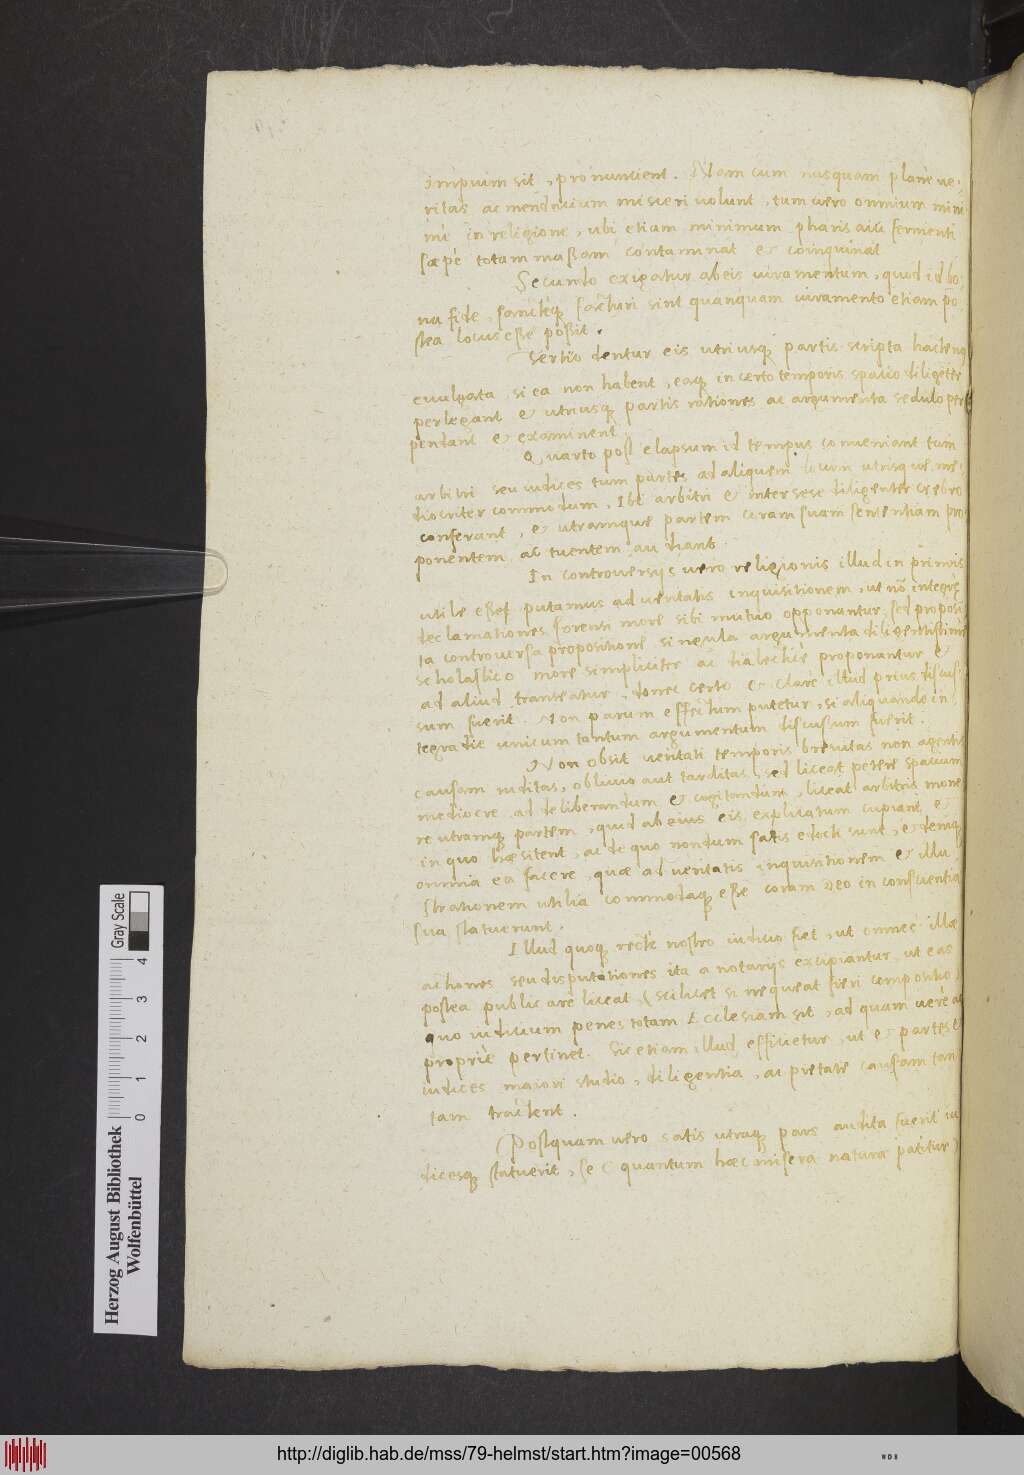 impium sit, pronuncient. Nam cum nusquam planè ve-
ritas ac mendacium misceri volunt, tum vero omnium mini-
mè in religione, ubi etiam minimum pharisaici fermenti
sæpè totam massam contaminat et coinquinat
Secundo exigatur ab eis iuramentum, quod id bo-
na fide, sancteq; facturi sint quanquam iuramento etiam po-
stea locus esse possit.
Tertio dentur eis utriusq; partis scripta hactenq
evulgata, si ea non habent, eaq; in certo temporis spacio diligēter
perlegant et utriusq; partis rationes ac argumenta sedulo per-
pendant et examinent.
Quarto post elapsum id tempus conveniant tum
arbitri seu iudices tum partes ad aliquem locum utrisque me-
diocriter commodum, Ibi arbitri et inter sese diligenter crebro
conferant, et utramque partem coram suam sententiam pro-
ponentem ac tuentem audiant.
In controversijs vero religionis illud in primis
utile esse putamus ad veritatis inquisitionem, ut nō integrę
declamationes forensi more sibi mutuo opponantur, sed proposi-
ta controversa propositione singula argumenta diligentissimè
scholastico more simpliciter ac dialecticè proponantur, et
ad aliud transeatur, donec certo et clarè illud prius discus-
sum fuerit. Non parum effectum putetur, si aliquando in-
tegra die unicum tantum argumentum discussum fuerit.
Non obsit veritati temporis brevitas non agentis
causam ruditas, oblivio aut tarditas, sed liceat petere spacium
mediocre ad deliberandum et cogitandum, liceat arbitris mone-
re utramq; partem, quid ab eius eis explicatum cupiant, et
in quo hæsitent, ac de quo nondum satis edocti sunt, et deniq;
omnia ea facere, quæ ad veritatis inquisitionem et illu-
strationem utilia commodaq; esse coram Deo in conscientia
sua statuerunt.
Illud quoq; rectè nostro iudicio fiet, ut omnes illæ
actiones seu disputationes ita a notarijs excipiantur, ut eas
postea publicare liceat, (scilicet si nequeat fieri compositio)
quo iudicium penes totam Ecclesiam sit, ad quam verè ac
propriè pertinet. Sic etiam illud efficietur, ut et partes et
iudices maiori studio, diligentia, ac pietate causam tan-
tam tractent.
(Postquam vero satis utraq; pars audita fuerit iu-
dicesq; statuerit, se (quantum hæc misera natura patitur)
Herzog August Bibliothek
Wolfenbüttel
0 1 2 3 4
Gray Scale
http://diglib.hab.de/mss/79-helmst/start.htm?image=00568